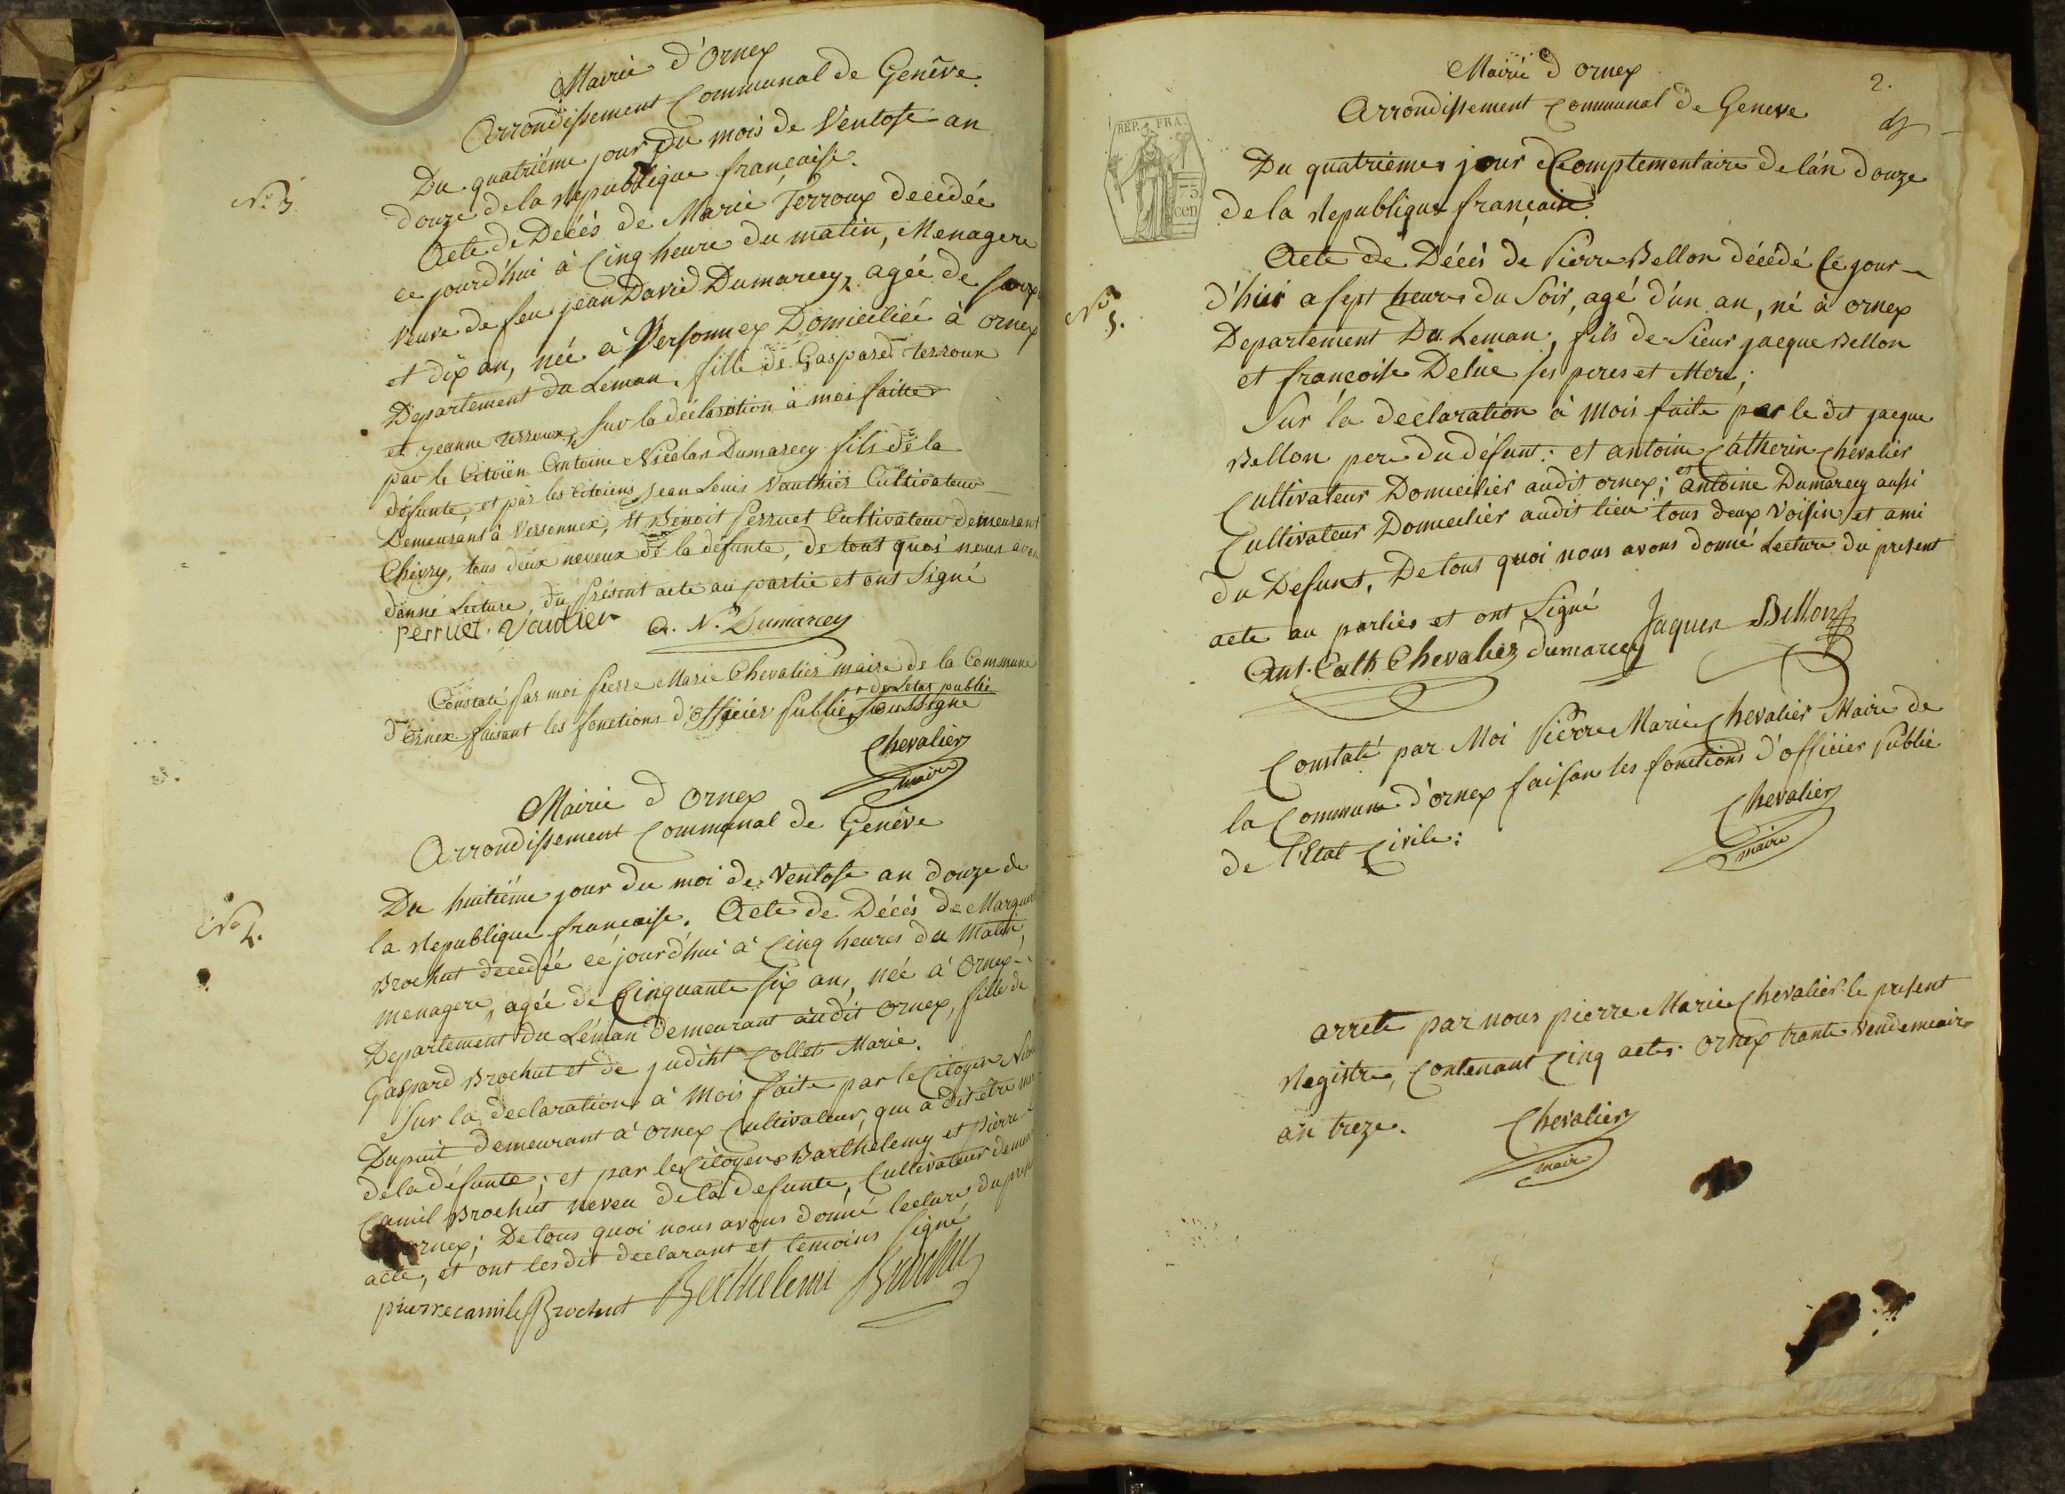 Mairie d'Ornex
Arrondissement Communal de Genêve.
N.º 3.
Du quatriéme jour du mois de Ventose an
douze de la Republique francaise.
Acte de Décés de Marie Terroux decédée
ce jourd'hui à Cinq heure du matin, Menagere
Veuve de feu jean David Dumarcey, agée de
et dix an, née à Versonnex Domiciliée à ornex
Departement du Leman, fille de Gaspared terroux
et jeanne terroux, sur la déclaration à moi faitte
par le Citoïen Antoine Nicolas Dumarcey fils de la
défunte, et par les citoiens Jean Louis Vauthier Cultivateur
Demeurant à Versonnex, et Benoit Perruet Cultivateur demeurant
Chévry, tous deux neveux de la défunte, de tout quoi nous avon
donné Lecture, du présent acte au partie et ont Signé
Perruet. Vautier A. N. Dumarcey
Constaté par moi pierre Marie Chevalier maire de la Commune
+ de Letat public
d'Ornex faisant les fonctions d'officier public Soussigné
Chevalier
maire
Mairie d Ornex
Arrondissement Communal de Genêve
N.º 4.
Du huitiéme jour du moi de Ventose an douze de
la Republique francaise. Acte de Décés de Margueri
Brochut decedée ce jourd'hui à Cinq heures du Matin,
menagere, agée de Cinquante six an, née à Ornex
Departement du Léman demeurant audit Ornex, fille de
Gaspard Brochut et de judiht Collet Marie.
Sur la declaration à Mois faite par le Citoyen
Dupuit demeurant à Ornex Cultivateur, qui a dit être
de la défunte; et par le Citoyens Barthelemy et Pierre
Camil Brochut neveu de la defunte, Cultivateur demeu
ornex; De tous quoi nous avons donné lecture du
acte, et ont lesdit declarant et temoins signé
pierre camile Brochut Berthelemi Brochu
2.
Mairie d ornex
Arrondissement Communal de Geneve
REP. FRA.
75
cen
Du quatriemes jour Complementaire de l'an douze
de la Republique française.
N.º 5.
Acte de Décés de Pierre Bellon décédé ce jour-
d'hui a sept heures du Soir, agé d'un an, né à ornex
Departement Du Leman, fils de Sieur jacque Bellon
et francoise Delue ses peres et Mere;
Sur la declaration à Mois faite par le dit jacque
Bellon pere du défunt: et antoine Catherin Chevalier
Cultivateur Domicilier audit ornex; et antoine Dumarcey aussi
Cultivateur Domicilier audit lieu tous deux Voisin et ami
du Defunt. De tous quoi nous avons donné Lecture du present
acte au parties et ont signé Jaques Bellon
Ant. Cath Chevalier Dumarcey
Constaté par Moi Pierre Marie Chevalier Maire de
la Commune d'ornex faisan les fonctions d'officier public
de l'Etat Civile:
Chevalier
maire
arrêté par nous pierre Marie Chevalier le present
Registre, Contenant Cinq actes. ornex trante Vendemiaire
an treze. Chevalier
maire